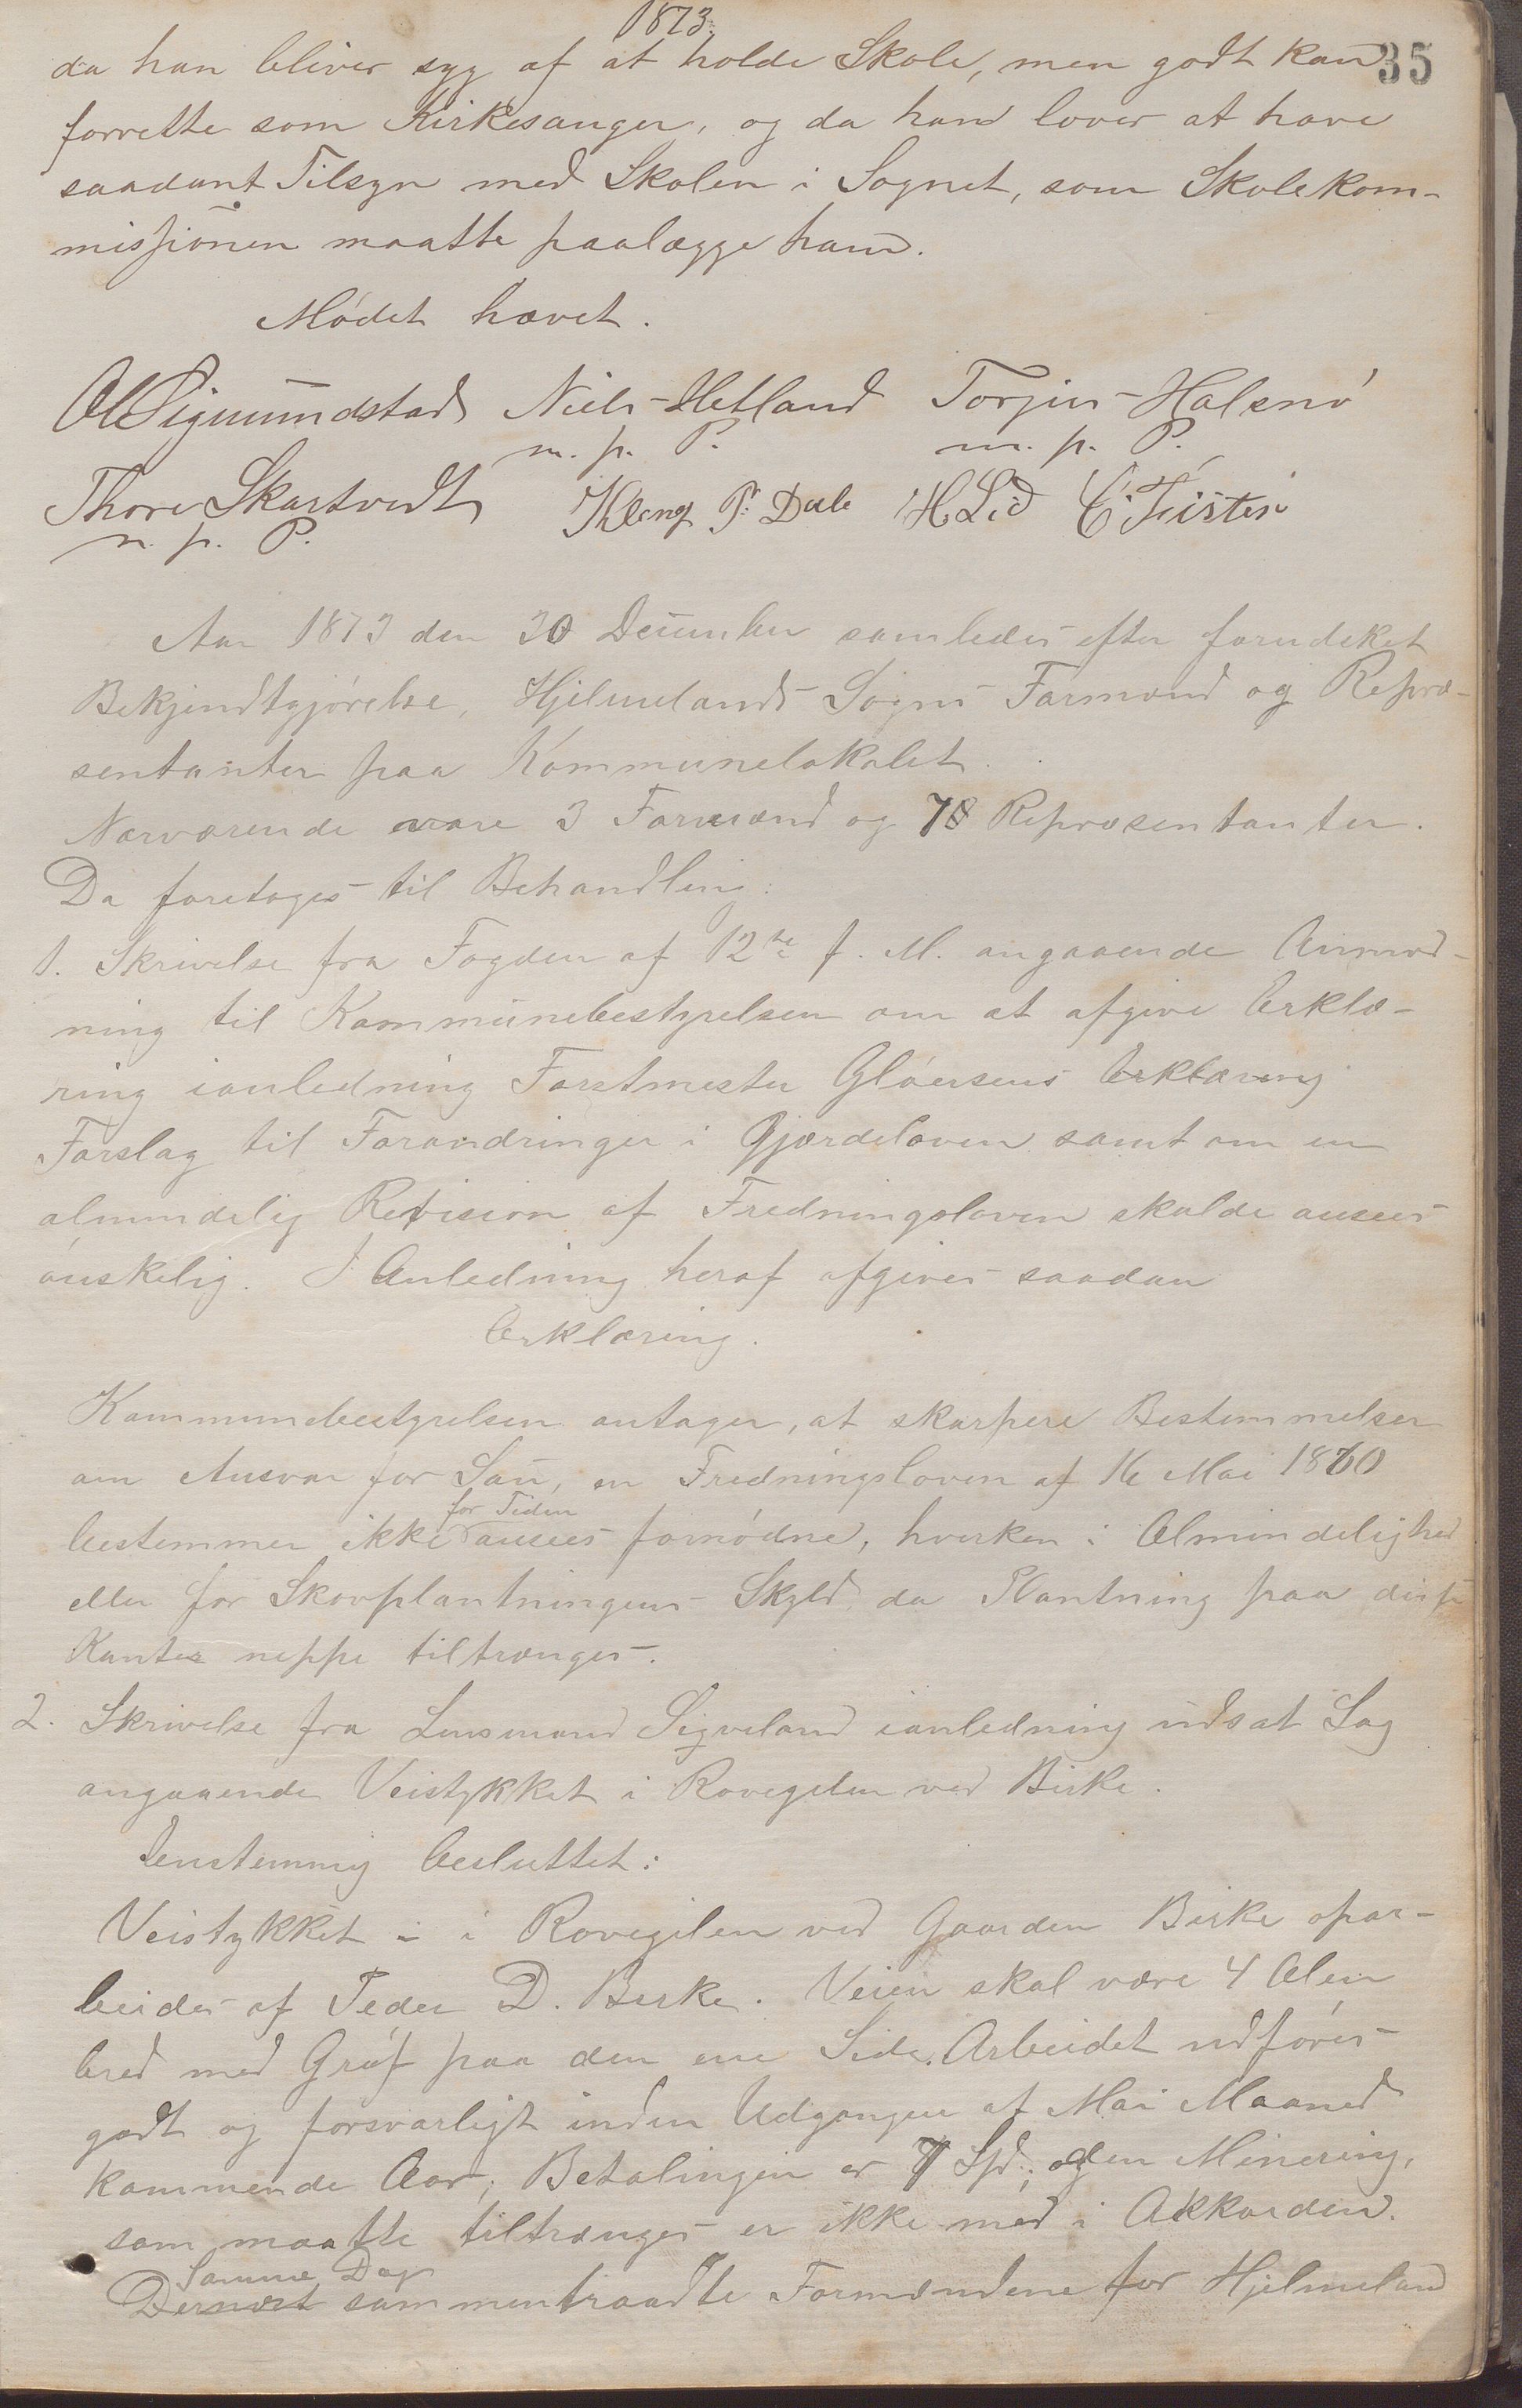 1873.
35
da han bliver syg af at holde Skole, men godt kan
forrette som Kirkesanger, og da han lover at have
saadant Tilsyn med Skolen i Sognet, som Skolekom-
missionen maatte paalægge ham.
Mødet hævet.
Ol Sigmundstad Niels Hetland Torjus Halsnø
m. p. P. m. p. P.
Thore Skartvedt Kleng P. Dale H Lid E. Tøisten
m. p. P.
Aar 1873 den 30 December samledes efter forud sket
Bekjendtgjørelse, Hjelmelands Sogns Formænd og Repræ-
sentanter paa Kommunelokalet.
Nærværende vare 3 Formænd og 7 Repræsentanter.
Da foretoges til Behandling:
1. Skrivelse fra Fogden af 12te f. M. angaaende Anmod-
ning til Kommunebestyrelsen om at afgive Erklæ-
ring ianledning Forstmester Gløersens Erklæring
Forslag til Forandringer i Gjerdeloven samt om en
almindelig Revision af Fredningsloven skulde ansees
ønskelig. I Anledning heraf afgives saadan
Erklæring.
Kommunebestyrelsen antager, at skarpere Bestemmelser
om Ansvar for Sau, en Fredningsloven af 16 Mai 1860
for Tiden
bestemmer ikke ansees fornødne, hverken i Almindelighed
eller for Skovplantningens Skyld da Plantning paa disse
Kanter neppe tiltrænges.
2. Skrivelse fra Lensmand Sigveland ianledning udsat Sag
angaaende Veistykket i Rovegilen ved Birke.
Eenstemmig besluttet:
Veistykket i i Rovegilen ved Gaarden Birke opar-
beides af Peder D. Birke. Veien skal være 4 Alen
bred med Grøf paa den ene Side. Arbeidet udføres
godt og forsvarligt inden Udgangen af Mai Maaned
kommende Aar; Betalingen er 7 Spd; den Minering,
som maatte tiltrænges er ikke med i Akkorden.
Samme Dag
Dernæst sammentraadte Formændene for Hjelmeland